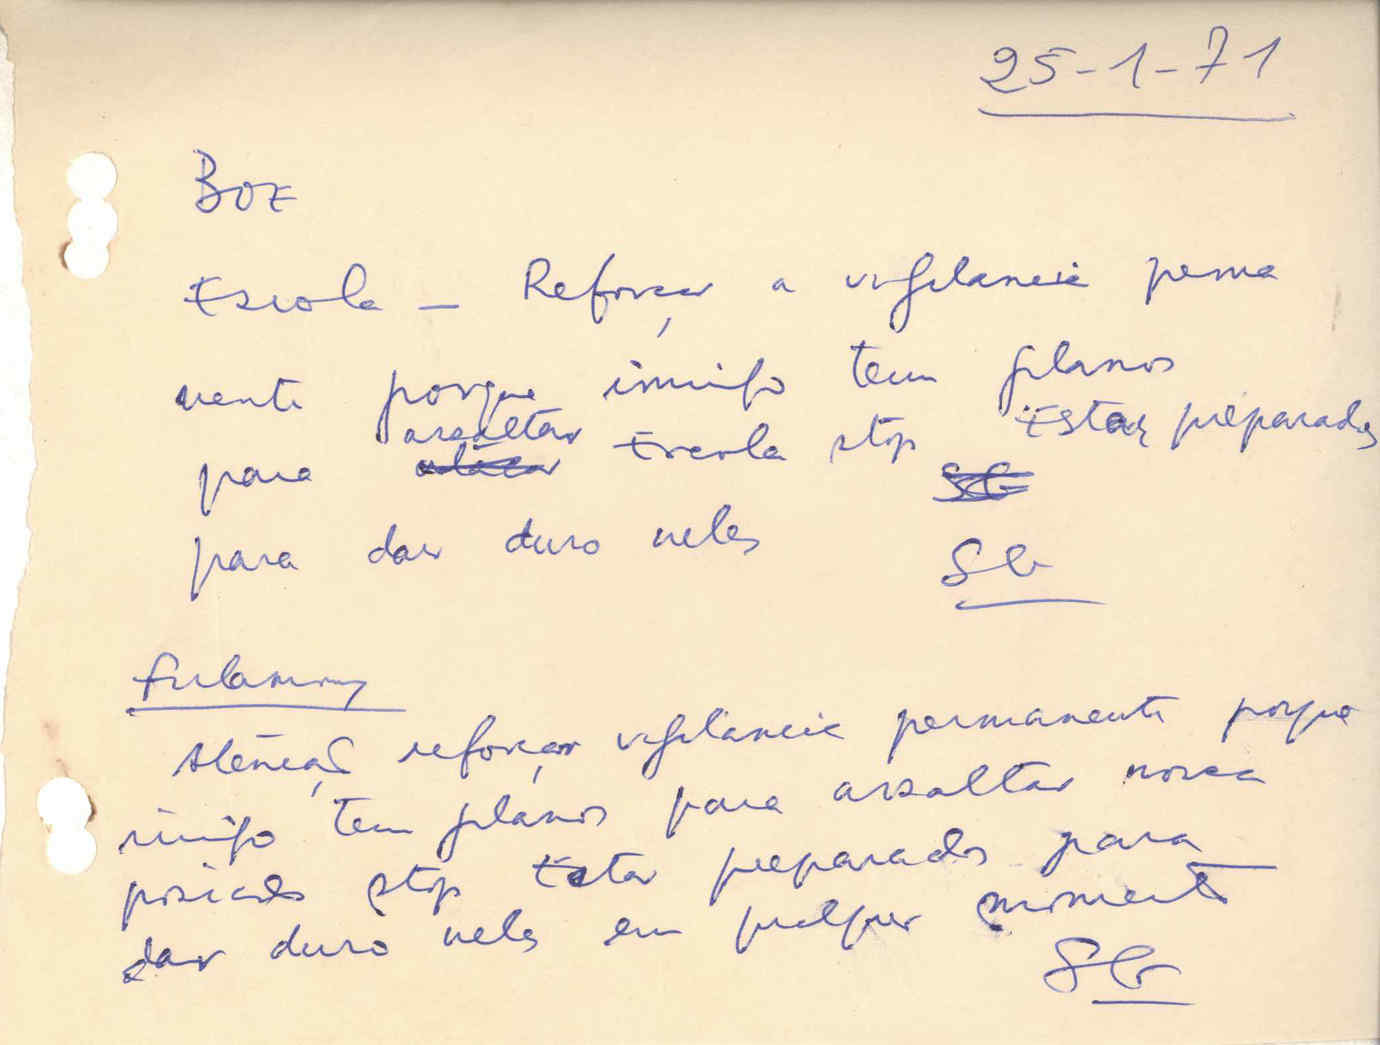 25-1-71
BOE
Escola - Reforçar a vigilancia perma
nente porque inimigo tem planos
para assaltar Escola stop Estar preparados
para dar duro neles
SG
SG
Fulamory
Atenção reforçar vigilancia permanente porque
inimigo tem planos para assaltar nossa
posição stop Estar preparados para
dar duro neles em qualquer momento
SG